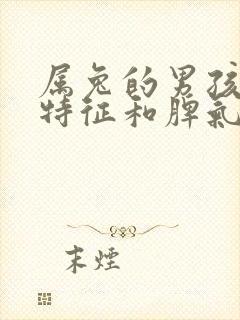 属兔的男孩
特征和脾氣
末煙